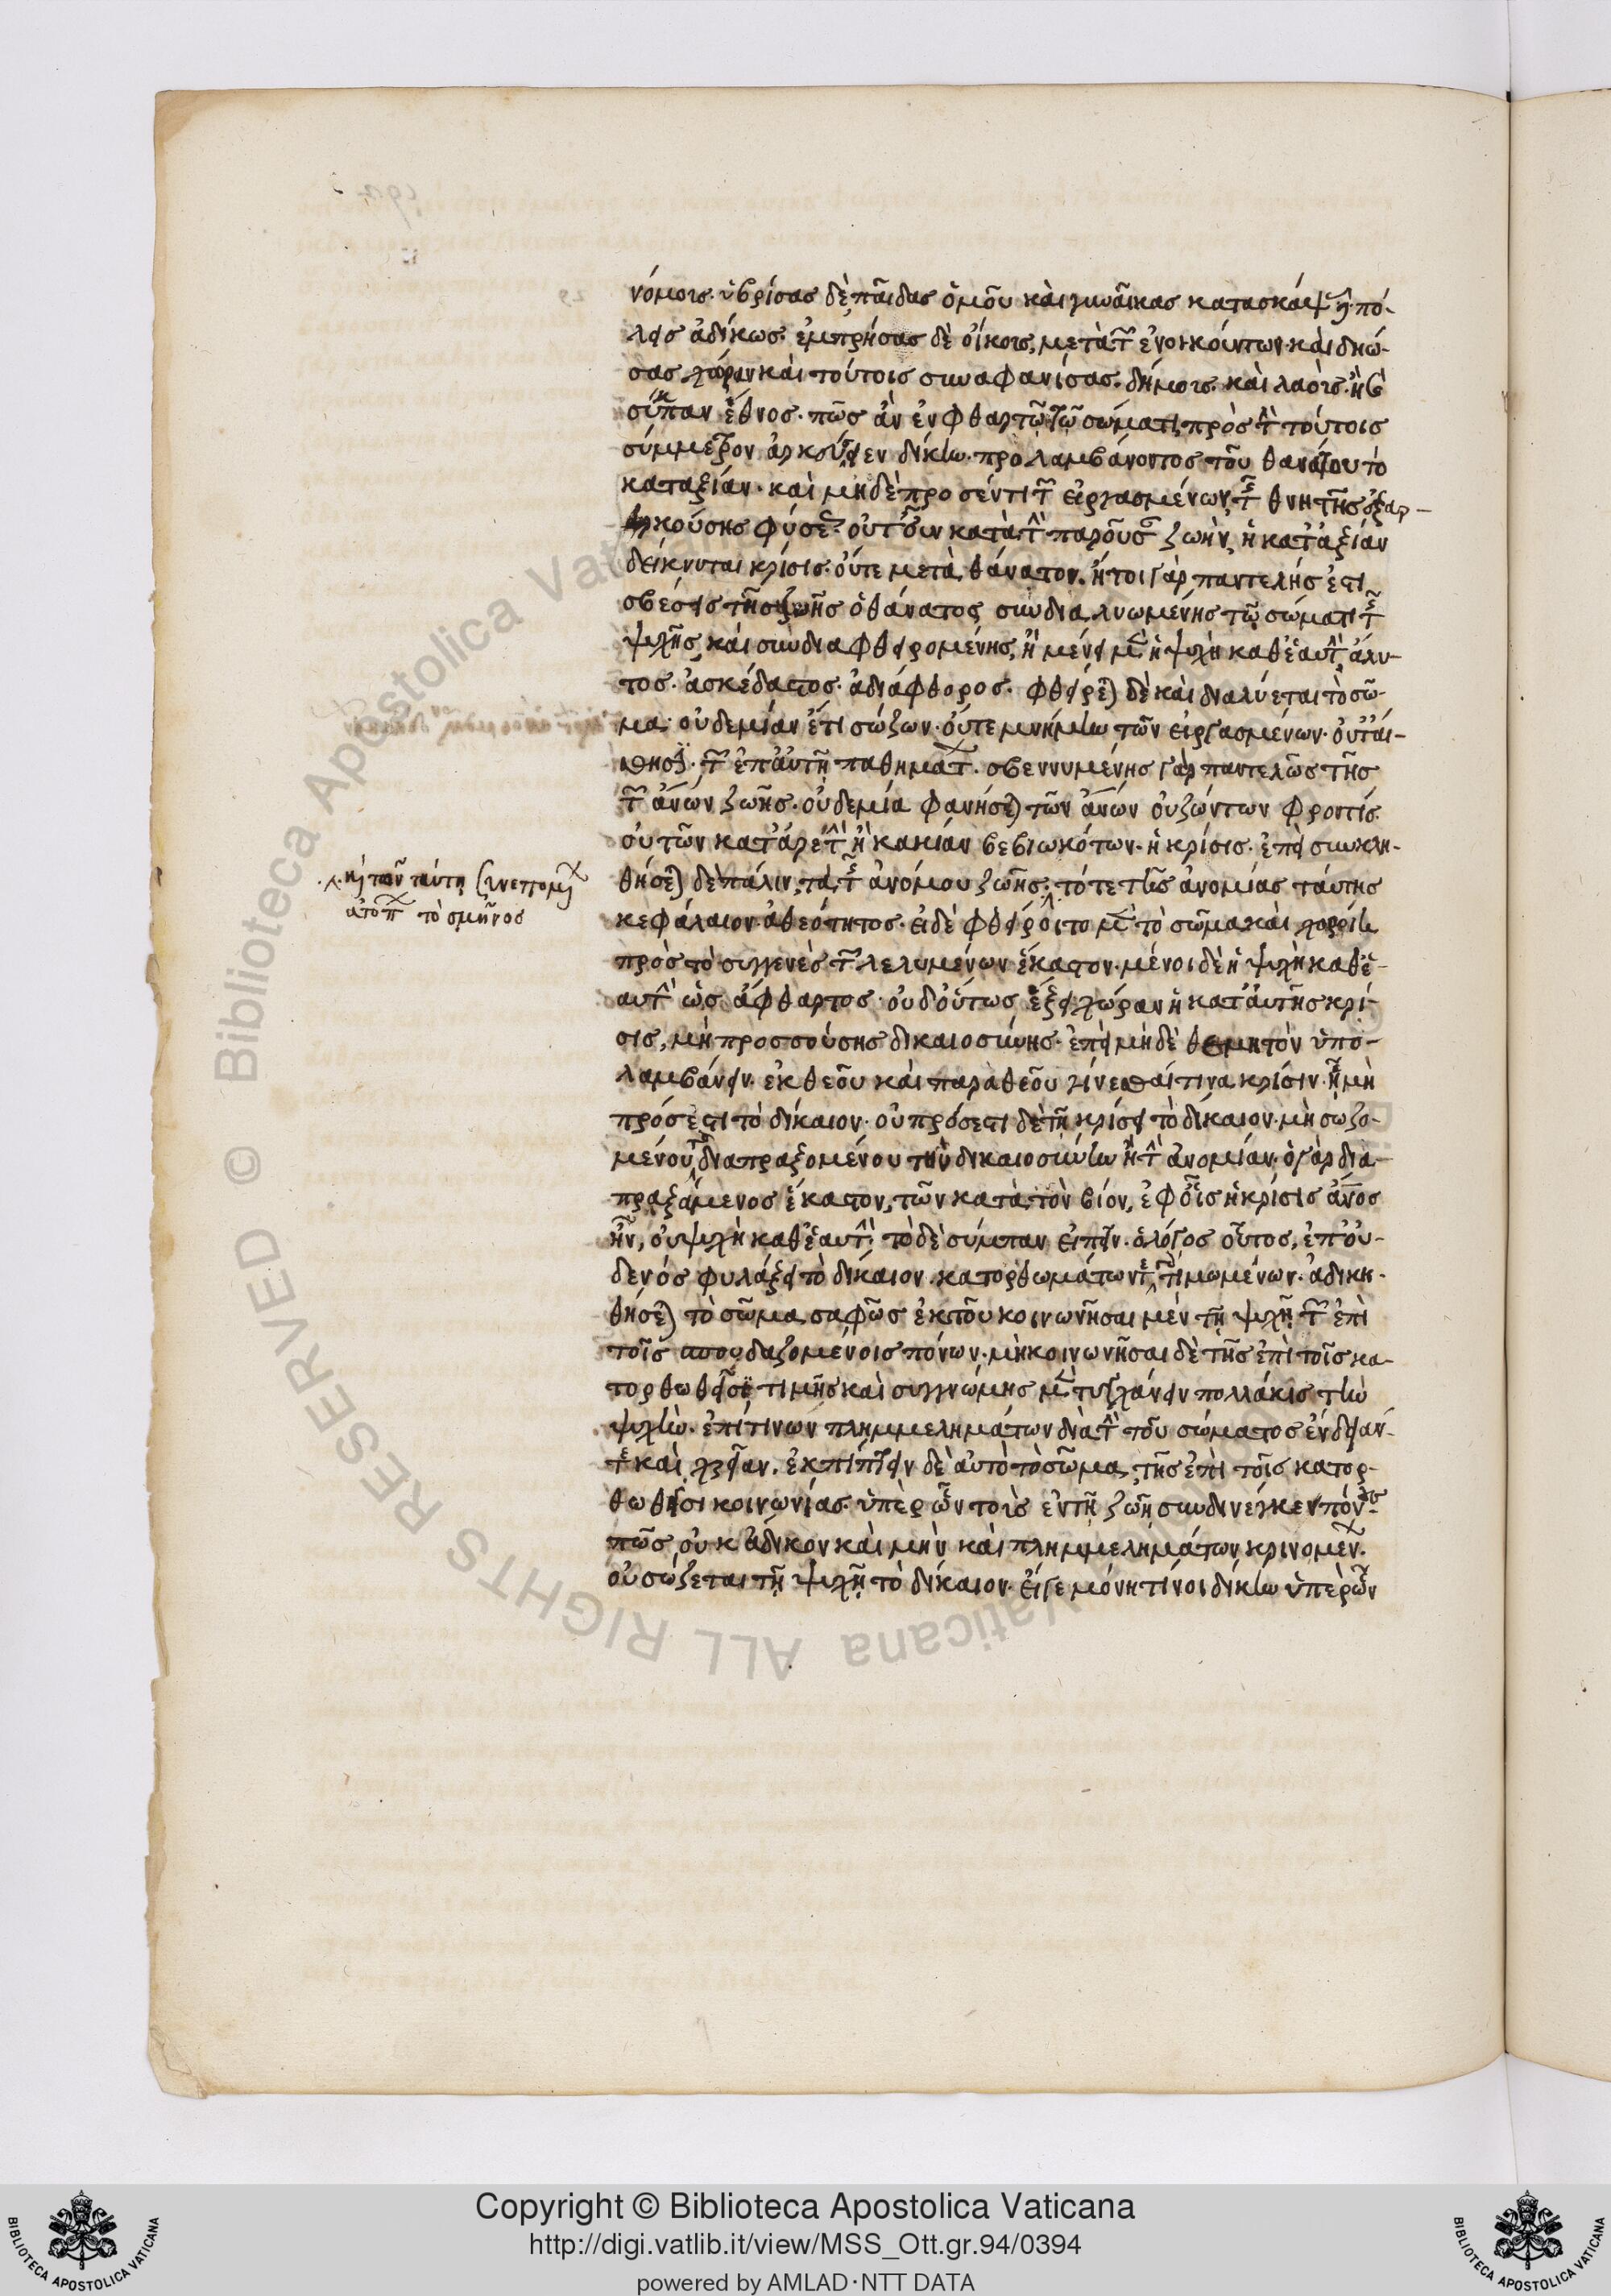 νόμοις· ὑβρίσας δὲ παῖδας ὁμοῦ καὶ γυναῖκας κατασκάψας δὲ πό-
λεις ἀδίκως· ἐμπρήσας δὲ οἴκους, μετὰ τῶν ἐνοικούντων· καὶ δηώ-
σας χώραν καὶ τούτοις συναφανίσας· δήμους καὶ λαοὺς· ἢ καὶ
σύμπαν ἔθνος· πῶς ἂν ἐν φθαρτῷ τῷ σώματι πρὸς τὴν τούτοις
σύμμετρον ἀρκέσειεν δίκην· προλαμβάνοντος τοῦ θανάτου τὸ
κατ' ἀξίαν· καὶ μηδὲ πρὸς ἕν τι τῶν εἰργασμένων τῆς θνητῆς ἐξαρ-
κούσης φύσεως· οὔτ' οὖν κατὰ τὴν παροῦσαν ζωὴν, ἡ κατ' ἀξίαν
δείκνυται κρίσις· οὔτε μετὰ θάνατον· ἤτοι γὰρ παντελής ἐστι
σβέσις τῆς ζωῆς ὁ θάνατος συνδιαλυομένης τῷ σώματι τῆς
ψυχῆς, καὶ συνδιαφθειρομένης, ἢ μένει μὲν ἡ ψυχὴ καθ' ἑαυτὴν ἄλυ-
τος· ἀσκέδαστος· ἀδιάφθορος· φθείρεται δὲ καὶ διαλύεται τὸ σῶ-
μα· οὐδεμίαν ἔτι σώζων· οὔτε μνήμην τῶν εἰργασμένων· οὔτ' αἴ-
σθησιν· τῶν ἐπ' αὐτῇ παθημάτων· σβεννυμένης γὰρ παντελῶς τῆς
τῶν ἀνων ζωῆς· οὐδεμία φανήσεται τῶν ἀνων οὐ ζώντων φροντίς·
οὐ τῶν κατ' ἀρετὴν ἢ κακίαν βεβιωκότων· ἡ κρίσις· ἐπεισκυκλη-
θήσεται δὲ πάλιν, τὰ τῆς ἀνόμου ζωῆς· τό τε τῆς ἀνομίας ταύτης
κεφάλαιον ἀθεότητος· εἰ δὲ φθείροιτο μὲν τὸ σῶμα καὶ χωροίη
πρὸς τὸ συγγενὲς τῶν λελυμένων ἕκαστον· μένοι δὲ ἡ ψυχὴ καθ' ἑ-
αυτὴν ὡς ἄφθαρτος· οὐδ' οὕτως ἕξει χώραν ἡ κατ' αὐτῆς κρί-
σις, μὴ προσούσης δικαιοσύνης· ἐπεὶ μηδὲ θεμιτὸν ὑπο-
λαμβάνειν· ἐκ θεοῦ καὶ παρὰ θεοῦ γίνεσθαί τινα κρίσιν· ᾗ μὴ
πρόσεστι τὸ δίκαιον· οὐ πρόσεστι δὲ τῇ κρίσει τὸ δίκαιον· μὴ σωζο-
μένου τοῦ διαπραξομένου τὴν δικαιοσύνην ἢ τὴν ἀνομίαν· ὁ γὰρ δια-
πραξάμενος ἕκαστον, τῶν κατὰ τὸν βίον, ἐφ' οἷς ἡ κρίσις ἄνος
ἦν, οὐ ψυχὴ καθ' ἑαυτήν· τὸ δὲ σύμπαν εἰπεῖν· ὁ λόγος οὗτος, ἐπ' οὐ-
δενός φυλάξει τὸ δίκαιον· κατορθωμάτων τε τιμωμένων· ἀδικη-
θήσεται τὸ σῶμα σαφῶς ἐκ τοῦ κοινωνῆσαι μὲν τῇ ψυχῇ τῶν ἐπὶ
τοῖς σπουδαζομένοις πόνων· μὴ κοινωνῆσαι δὲ τῆς ἐπὶ τοῖς κα-
τορθωθεῖσι τιμῆς καὶ συγγνώμης μὲν τυγχάνειν πολλάκις τὴν
ψυχὴν· ἐπί τινων πλημμελημάτων διὰ τὴν τοῦ σώματος ἔνδειάν
τε καὶ χρείαν· ἐκπίπτειν δὲ αὐτὸ τὸ σῶμα, τῆς ἐπὶ τοῖς κατορ-
θωθεῖσι κοινωνίας· ὑπὲρ ὧν τοὺς ἐν τῇ ζωῇ συνδιήνεγκεν πόνους·
πῶς οὐκ ἄδικον καὶ μὴν καὶ πλημμελημάτων κρινομένων·
οὐ σώζεται τῇ ψυχῇ τὸ δίκαιον· εἴ γε μόνη τίνοι δίκην ὑπὲρ ὧν
ἀτόπων τὸ σμῆνος
© Biblioteca Apostolica Vaticana ALL RIGHTS RESERVED
Copyright © Biblioteca Apostolica Vaticana
http://digi.vatlib.it/view/MSS_Ott.gr.94/0394
powered by AMLAD·NTT DATA
BIBLIOTECA APOSTOLICA VATICANA
BIBLIOTECA APOSTOLICA VATICANA